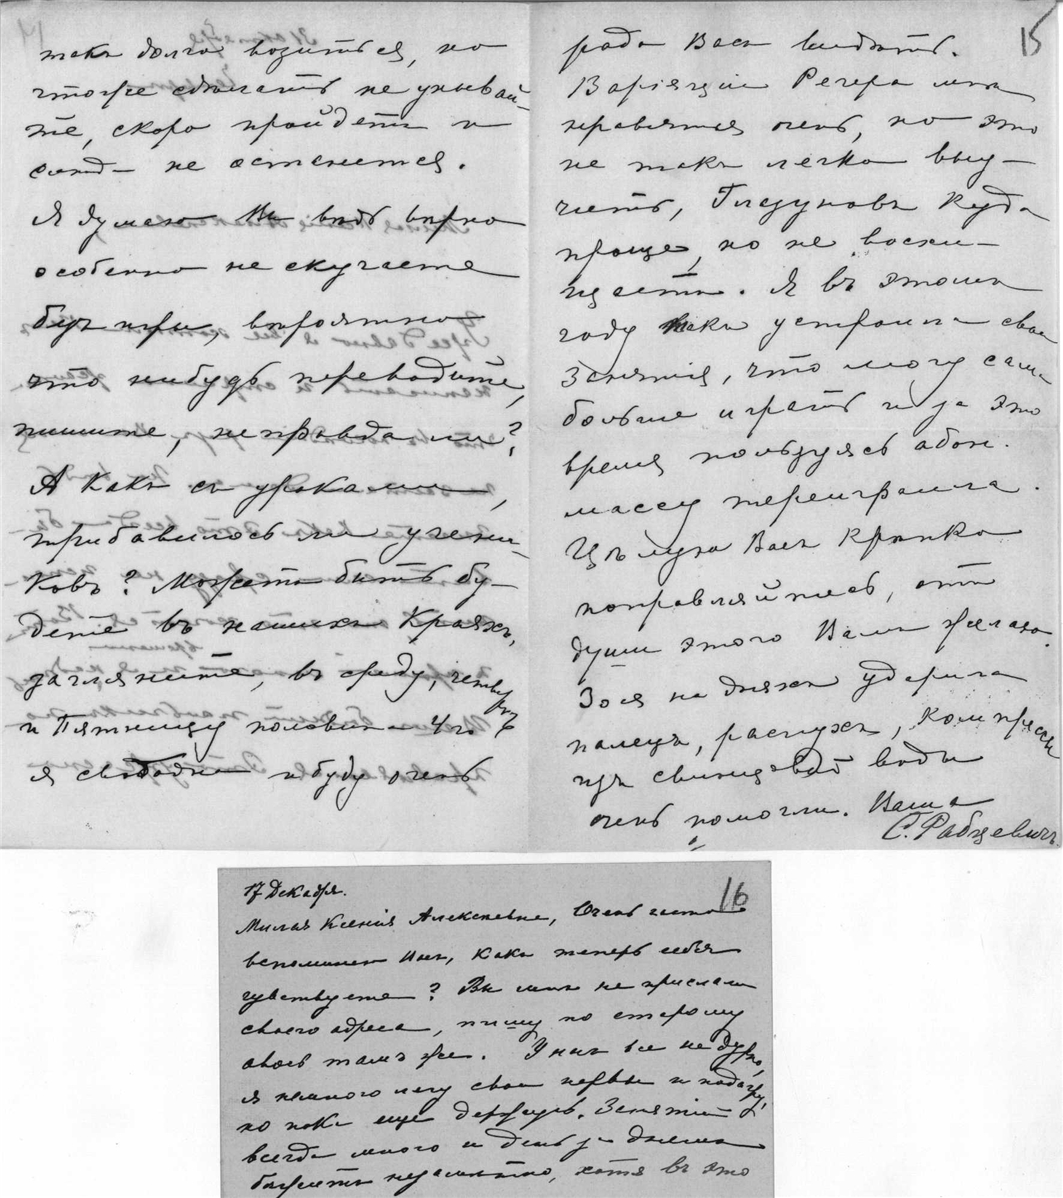 такъ долго возиться, но
чтоже сдѣлать не унывай-
те, скоро пройдетъ и
слѣд- не останется.
Я думаю Вы вѣдь вѣрно
особенно не скучаете
безъ игры, вѣроятно
что нибудь переводите,
пишите, не правда ли?
А какъ съ уроками,
прибавилось ли учени-
ковъ? Можетъ быть бу-
дете въ нашихъ краяхъ,
загляните, въ среду, четвергъ
и Пятницу половин- 4го
я свободна и буду очень
15
рада Васъ видѣть.
Варіяціи Регера мнѣ
нравятся очень, но это
не такъ легко выу-
чить, Глазуновъ куда
проще, но не восхи-
щаетъ. Я въ этомъ
году такъ устроила свои
занятія, что могу сама
больше играть и за это
время пользуясь абон.
массу переиграла.
Цѣлую Васъ крѣпко
поправляйтесь, отъ
души этого Вамъ желаю.
Зоя на дняхъ ударила
палецъ, распухъ, компрессы
изъ свинцовой воды
очень помогли. Ваша
С. Рабцевичъ
16
17 Декабря.
Милая Ксенія Алексѣевна, Очень часто
вспоминаю Васъ, какъ теперь себя
чувствуете? Вы мнѣ не прислали
своего адреса, пишу по старому
авось тамъ же. У насъ все недурно,
я немного лечу свои нервы и подагру,
но пока еще держусь. Занятій
всегда много и день за днемъ
бѣжитъ незамѣтно, хотя въ это